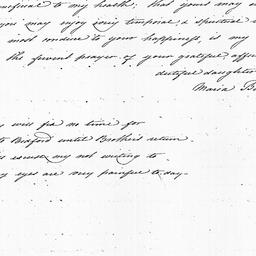 to my health; that yours may
you may enjoy every temporal & spiritual
most conduce to your happiness, is my
the fervent prayer of your grateful affec
dutiful daughter
Maria B
will find no time for
to Bedford until Brother's return
excuse my not writing to
my eyes are very painful to day